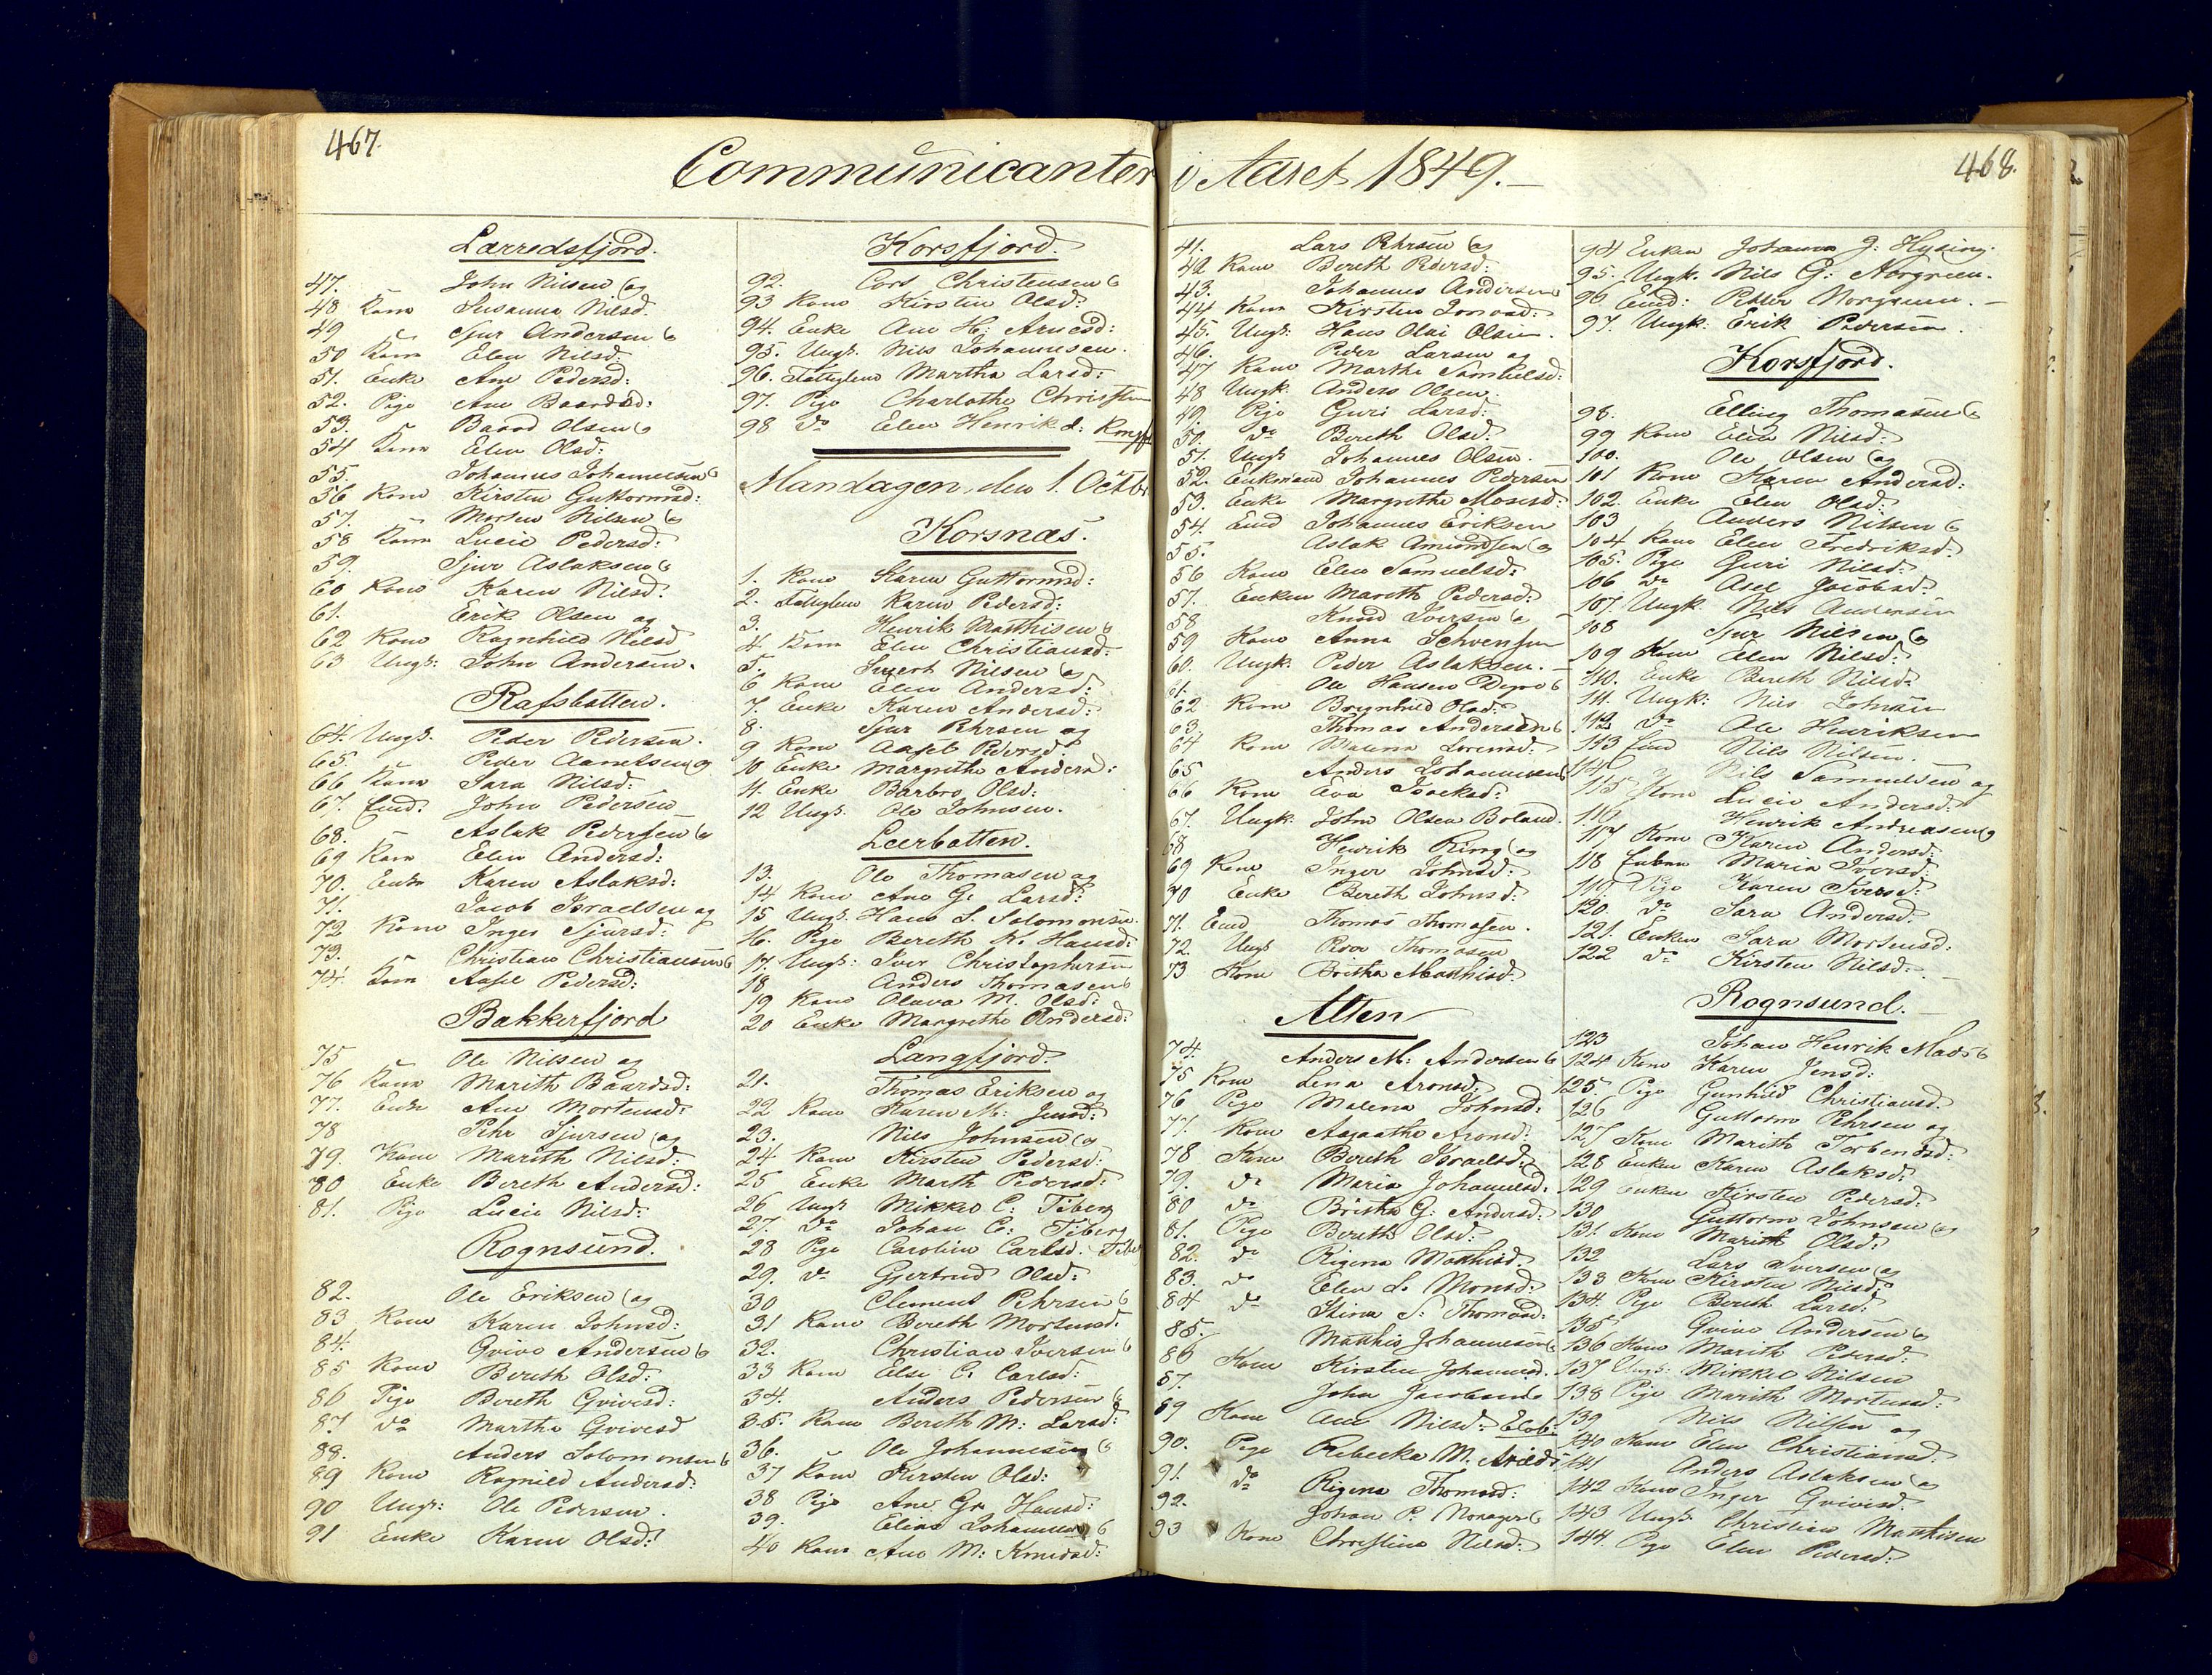 467.
Communicanter i Aaret 1849.
468.
Larredsfjord.
47. John Nilsen og
48 Kone Susanna Nilsd.
49 Sjur Andersen og
50 Kone Elen Nilsd:
51. Enke Ane Pedersd:
52. Pige Ane Baardsd:
53. Baard Olsen og
54 Kone Elen Olsd:
55. Johannes Johannesen og
56 Kone Kirsten Guttormsd:
57. Morten Nilsen og
58 Kone Lucie Pedersd:
59. Sjur Aslaksen og
60 Kone Karen Nilsd:
61. Erik Olsen og
62 Kone Ragnhild Nilsd
63 Ungk: John Andersen.
Rafsbotten.
64. Ungk. Peder Pedersen.
65. Peder Aametsen og
66 Kone Sara Nilsd:
67. Eind. John Pedersen
68. Aslak Pedersen og
69 Kone Elen Andersd:
70. Enke Karen Aslaksd:
71. Jacob Israelsen og
72. Kone Inger Sjursd:
73. Christian Christiansen og
74. Kone Aasel Pedersd:
Bakkerfjord
75 Ole Nilsen og
76 Kone Marith Baardsd:
77. Enke Ane Mortensd:
78 Pehr Sjursen og
79. Kone Marith Nilsd:
80 Enke Bereth Andersd:
81. Pige Lucie Nilsd:
Rognsund.
82. Ole Eriksen og
83 Kone Karen Johnsd:
84. Gvivo Andersen og
85 Kone Bereth Olsd:
86 Pige Bereth Gvivesd:
87. do Martha Gvivesd
88. Anders Solomonsen og
89 Kone Ragnild Andersd:
90 Ungk: Ole Pedersen.
91 Enke Karen Olsd:
Korsfjord.
92. Cort Christensen og
93 Kone Kirsten Olsd:
94. Enke Ane H: Arnesd:
95. Ungk. Nils Johannesen.
96. Fattiglem Martha Larsd:
97. Pige Charlothe Christen
98 do Elen Henrikd:
Mandagen den 1. Octbr
Korsnæs.
1. Kone Karen Guttormsd:
2. Fattiglem Karen Pedersd:
3. Henrik Matthisen og
4. Kone Elen Christiansd:
5. Sivert Nilsen og
6 Kone Elen Andersd:
7. Enke Karen Andersd:
8. Sjur Pehrsen og
9 Kone Aasel Pedersd:
10 Enke Margrethe Andersd:
11. Enke Barbro Olsd:
12 Ungk. Ole Johnsen.
Leerbotten.
13. Ole Thomasen og
14. Kone Ane G. Larsd:
15 Ungk. Hans S. Solomonsen.
16. Pige Bereth K. Hansd:
17. Ungk: Iver Christophersen
18. Anders Thomasen og
19 Kone Olava M. Olsd:
20 Enke Margrethe Andersd:
Langfjord.
21. Thomas Eriksen og
22 Kone Karen M: Jensd:
23. Nils Johnsen og
24. Kone Kirsten Pedersd:
25 Enke Marth Pedersd:
26 Ungk Mikkel C: Fiberg
27. do Johan C: Fiberg
28 Pige Caroline Carlsd. Fiberg
29. do Gjertrud Olsd:
30 Clement Pehrsen og
31 Kone Bereth Mortensd.
32. Christian Iversen og
33 Kone Else C. Carlsd:
34. Anders Pedersen og
35. Kone Bereth M: Larsd:
36. Ole Johannesen og
37 Kone Kersten Olsd:
38 Pige Ane Gr Hansd:
39. Elias Johannesen og
40 Kone Ane M: Knudsd:
41. Lars Pehrsen og
42 Kone Bereth Pedersd:
43. Johannes Andersen
44 Kone Kirsten Jonasd:
45. Ungk: Hans Olai Olsen.
46. Peder Larsen og
47 Kone Marthe Samuelsd:
48 Ungk. Anders Olsen.
49. Pige Guri Larsd:
50. do Bereth Olsd:
51. Ungk Johannes Olsen.
52. Enkemand Johannes Pedersen
53. Enke Margrethe Mosesd:
54. Eind Johannes Eriksen
55. Aslak Amundsen og
56 Kone Elen Samuelsd:
57. Enken Mareth Pedersd:
58 Knud Iversen og
59 Kone Anna Schvensen
60. Ungk. Peder Aslaksen.
61. Ole Hansen Dypvi og
62 Kone Brynhild Olsd:
63 Thomas Andersen og
64 Kone Malena Lorensd:
65 Anders Johannesen og
66 Kone Eva Isacksd:
67. Ungk. John Olsen Boland.
68 Henrik Ring og
69 Kone Inger Johnsd:
70 Enke Bereth Johnsd:
71. Eind Thomas Thomasen.
72. Ungk Peder Thomasen
73 Kone Britha Matthisd.
Alten
74. Anders M: Andersen og
75 Kone Lena Aronsd:
76 Pige Malena Johnsd:
77. Kone Agaathe Aronsd:
78 Kone Bereth Israelsd:
79. do Maria Johannesd.
80 do Britha G: Andersd:
81. Pige Bereth Olsd:
82. do Rigina Matthisd.
83. do Elen L. Monsd:
84 do Stina S. Thomasd:
85. Matthis Johannesen og
86 Kone Kirsten Johannesd.
87. John Jacobsen
89 Kone Ane Nilsd: Elvb:
90. Pige Rebecka M. Arildsd
91. do Rigina Thomasd:
92. Johan P. Monagen og
93 Kone Christina Nilsd:
94 Enken Johanna J: Hysing.
95. Ungk. Nils G: Norgreen.
96. Eind: Petter Norgreen.
97. Ungk: Erik Pedersen.
Korsfjord.
98. Elling Thomasen og
99 Kone Elen Nilsd:
100. Ole Olsen og
101 Kone Karen Andersd:
102. Enke Elen Olsd:
103 Anders Nilsen og
104 Kone Elen Fredriksd:
105. Pige Guri Nilsd:
106 do Asel Jacobsd:
107. Ungk. Nils Andersen
108 Sjur Nilsen og
109 Kone Elen Nilsd:
110. Enke Bereth Nilsd:
111. Ungk: Nils Johnsen
112 do Ole Henriksen
113 Eind Nils Nilsen.
114 Nils Samuelsen og
115 Kone Lucie Andersd:
116. Henrik Andreasen og
117 Kone Karen Andersd:
118 Enken Maria Iversd:
119 Pige Karen Iversd:
120. do Sara Andersd:
121. Enken Sara Mortensd:
122 do Kirsten Nilsd:
Rognsund.
123 Johan Henrik Mads og
124 Kone Karen Jensd:
125. Pige Gunhild Christiansd.
126 Guttorm Pehrsen og
127 Kone Marith Torbensd:
128 Enken Karen Aslaksd:
129 Enken Kirsten Pedersd.
130 Guttorm Johnsen og
131. Kone Marith Olsd:
132 Lars Iversen og
133 Kone Kirsten Nilsd:
134. Pige Bereth Larsd:
135 Gvivo Andersen og
136 Kone Marith Pedersd:
137 Ungk: Mikkel Nilsen
138 Pige Marith Mortensd:
139 Nils Nilsen og
140 Kone Elen Christiansd:
141 Anders Aslaksen og
142 Kone Inger Gvivesd.
143 Ungk. Christian Matthisen
144. Pige Elen Pedersd: